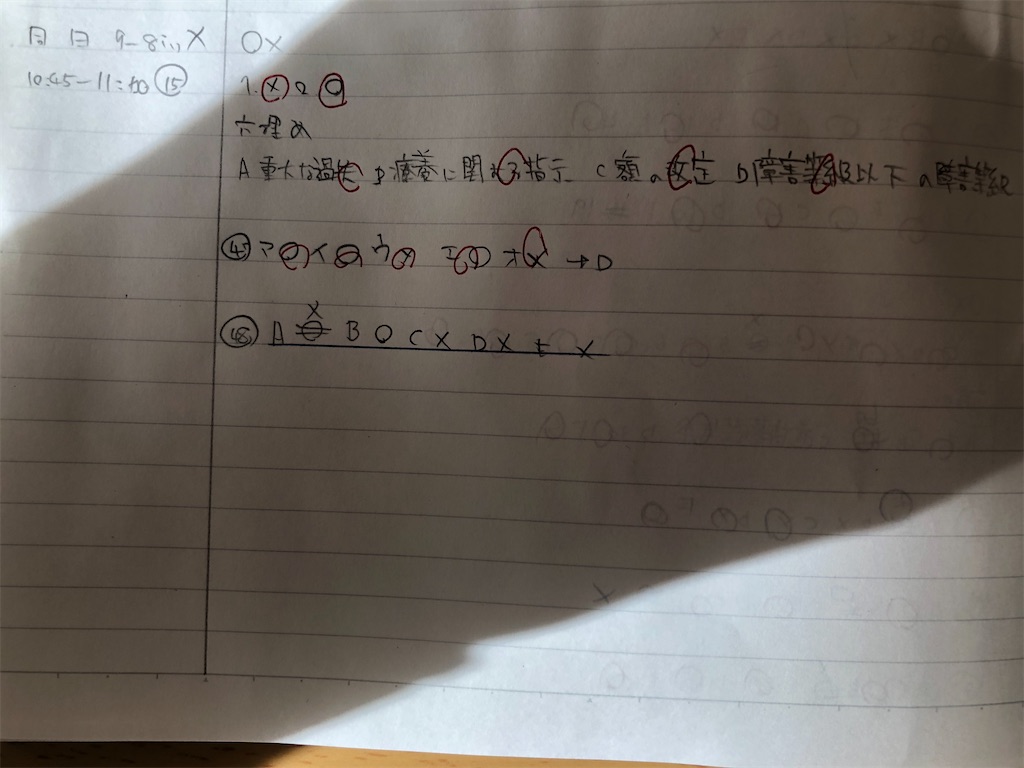 月 日 9-8in X
10:45-11:00 ⑮
OX
1. X 2 O
穴埋め
A 重大な過失 B 療養に関する指示 C 額の改定 D 障害等級以下 a障害等級
㊺ ア O イ O ウ O エ O オ X → D
X
㊽ A B O C X D X E X